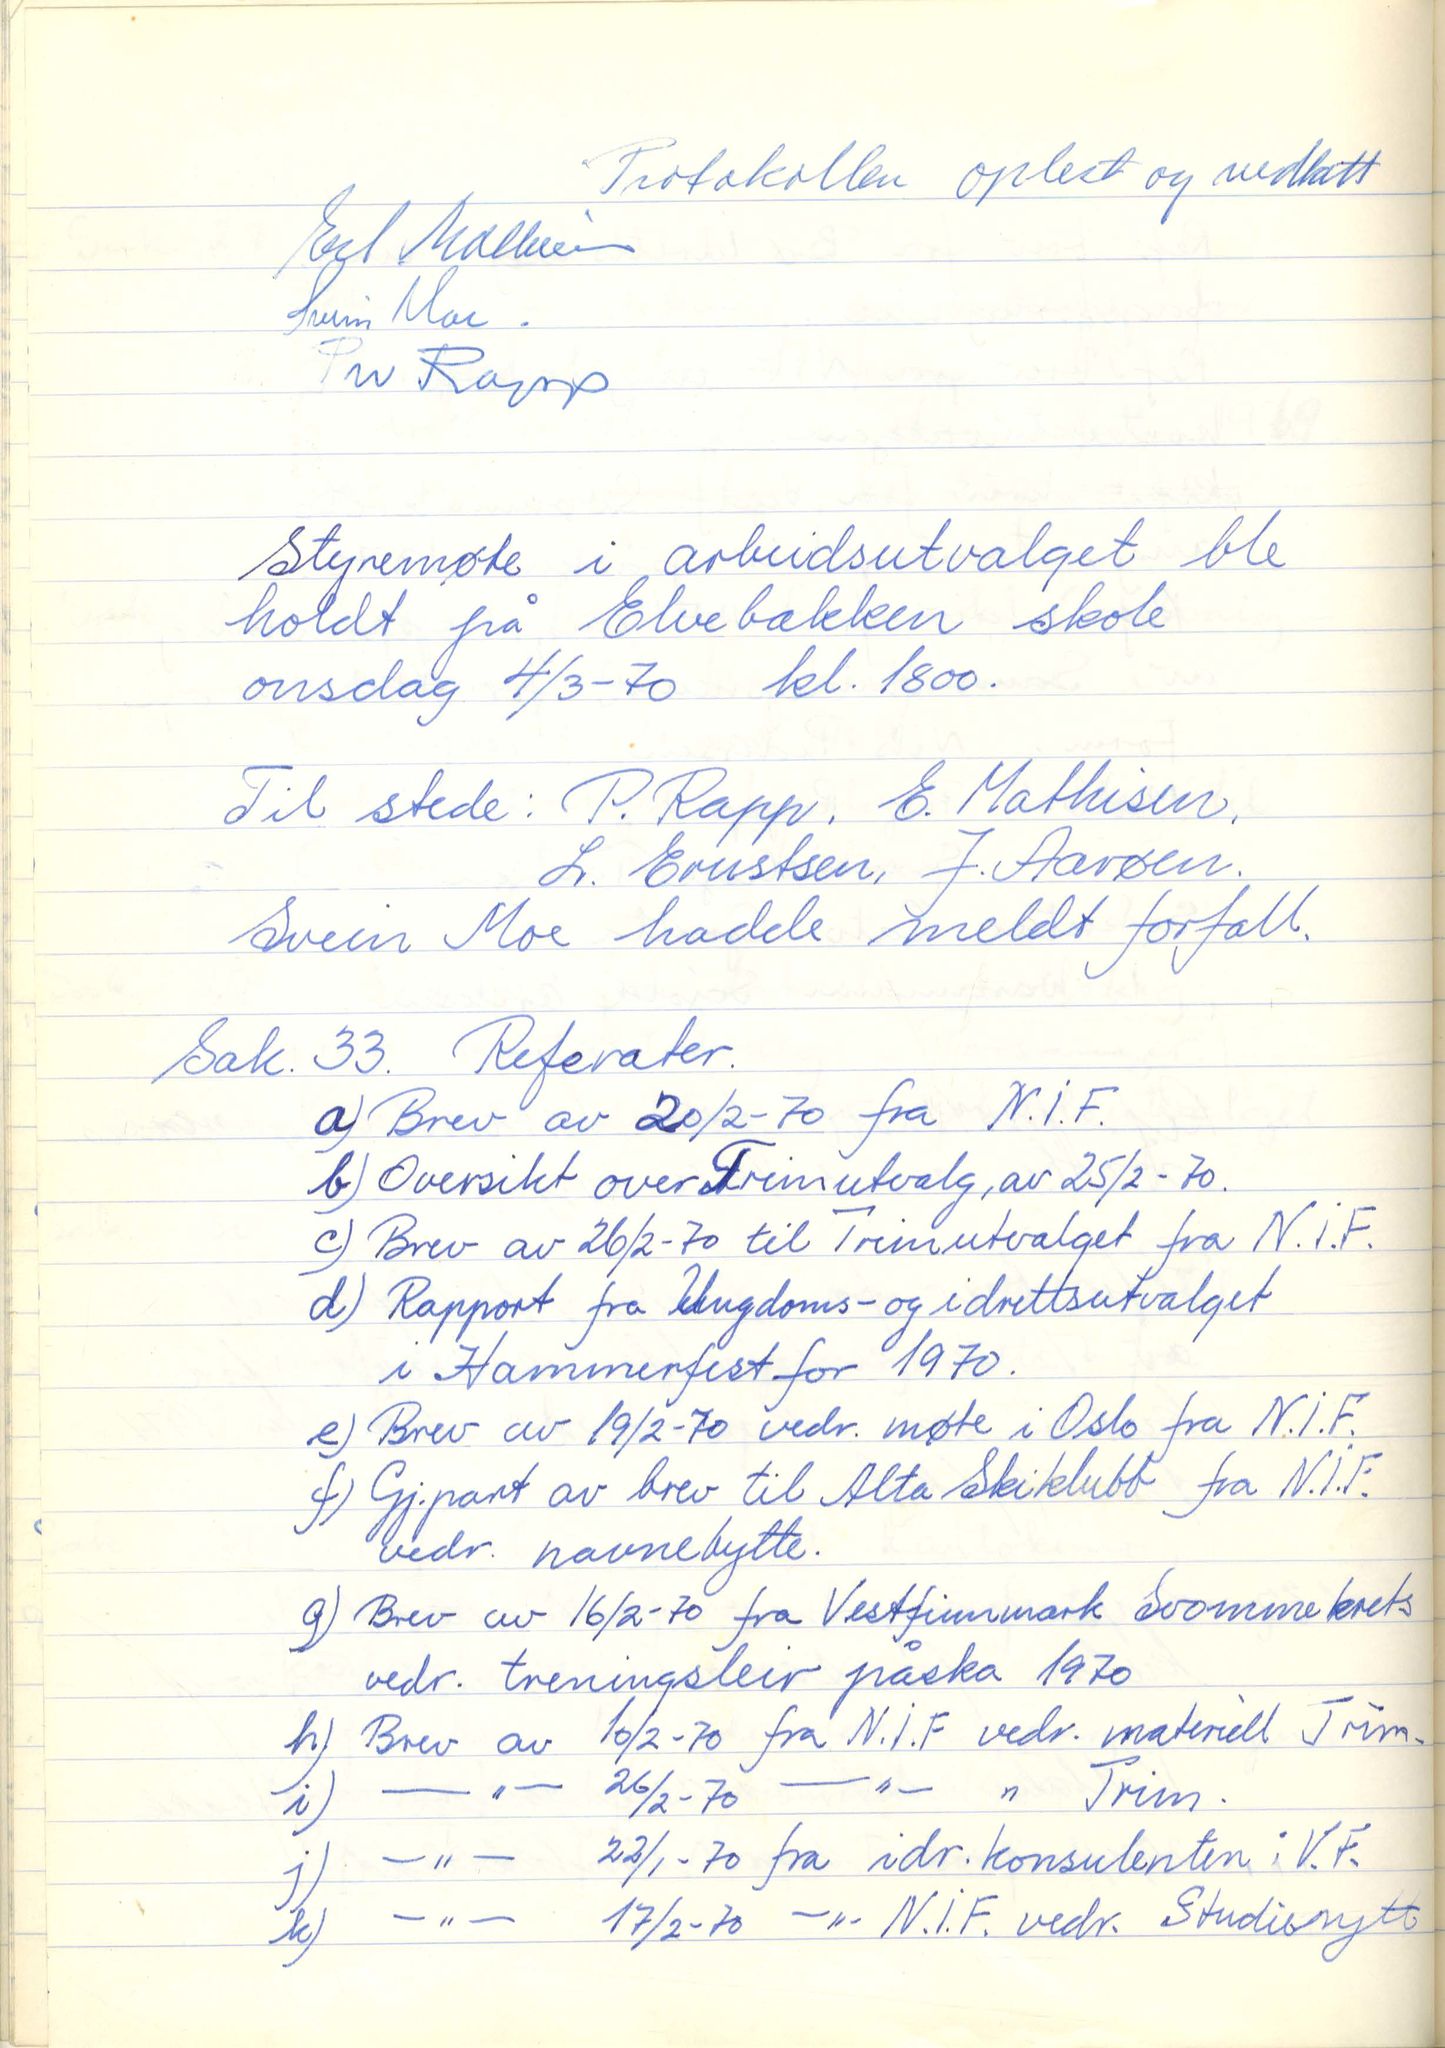 Protokollen oplest og vedtatt
Svein Moe.
Per Rapp
Styremøte i arbeidsutvalget ble
holdt på Elvebakken skole
onsdag 4/3-70 kl. 1800.
Til stede: P. Rapp. E. Mathisen,
L. Ernstsen, J. Aarøen.
Svein Moe hadde meldt forfall.
Sak. 33. Referater.
a) Brev av 20/2-70 fra N.I.F.
b) Oversikt over Trimutvalg, av 25/2-70.
c) Brev av 26/2-70 til Trimutvalget fra N.I.F.
d) Rapport fra Ungdoms- og idrettsutvalget
i Hammerfest for 1970.
e) Brev av 19/2-70 vedr. møte i Oslo fra N.I.F.
f) Gj.part av brev til Alta Skiklubb fra N.I.F.
vedr. navnebytte.
g) Brev av 16/2-70 fra Vestfinnmark Svømmekrets
vedr. treningsleir påska 1970
h) Brev av 10/2-70 fra N.I.F vedr. materiell Trim.
i) — " — 26/2-70 — " — " Trim.
j) — " — 22/1-70 fra idr.konsulenten i V.F.
k) — " — 17/2-70 — " — N.I.F. vedr. Studienytt